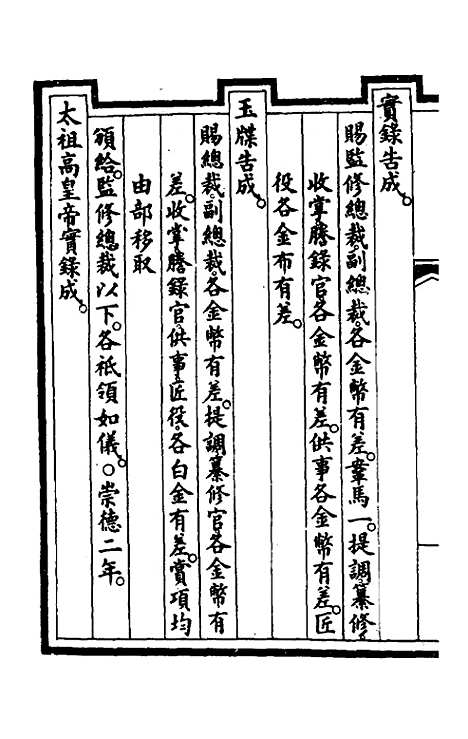 實錄告成。
賜監修總裁。副總裁。各金幣有差。鞌馬一。提調。纂修。
收掌。謄錄官。各金幣有差。供事各金幣有差。匠
役各金布有差。
玉牒告成。
賜總裁。副總裁。各金幣有差。提調纂修官各金幣有
差。收掌。謄錄官。供事。匠役。各白金有差。賞項均
由部移取
頒給。監修總裁以下。各祇領如儀。○崇德二年。
太祖高皇帝實錄成。